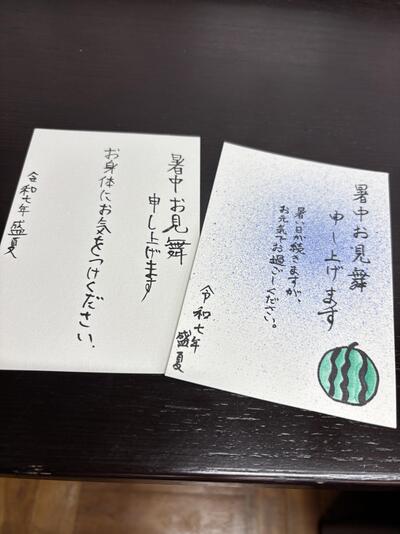 暑中お見舞
申し上げます
お身体にお気をつけください.
令和七年 盛夏
暑中お見舞
申し上げます
暑い日が続きますが、
お元気でお過ごしください。
令和七年
盛夏